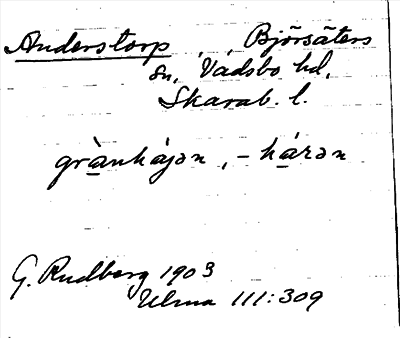 Anderstorp Björsäters
sn, Vadsbo hd,
Skarab. l.
grànhájən, -hárən
G. Rudberg 1903
Ulma 111:309